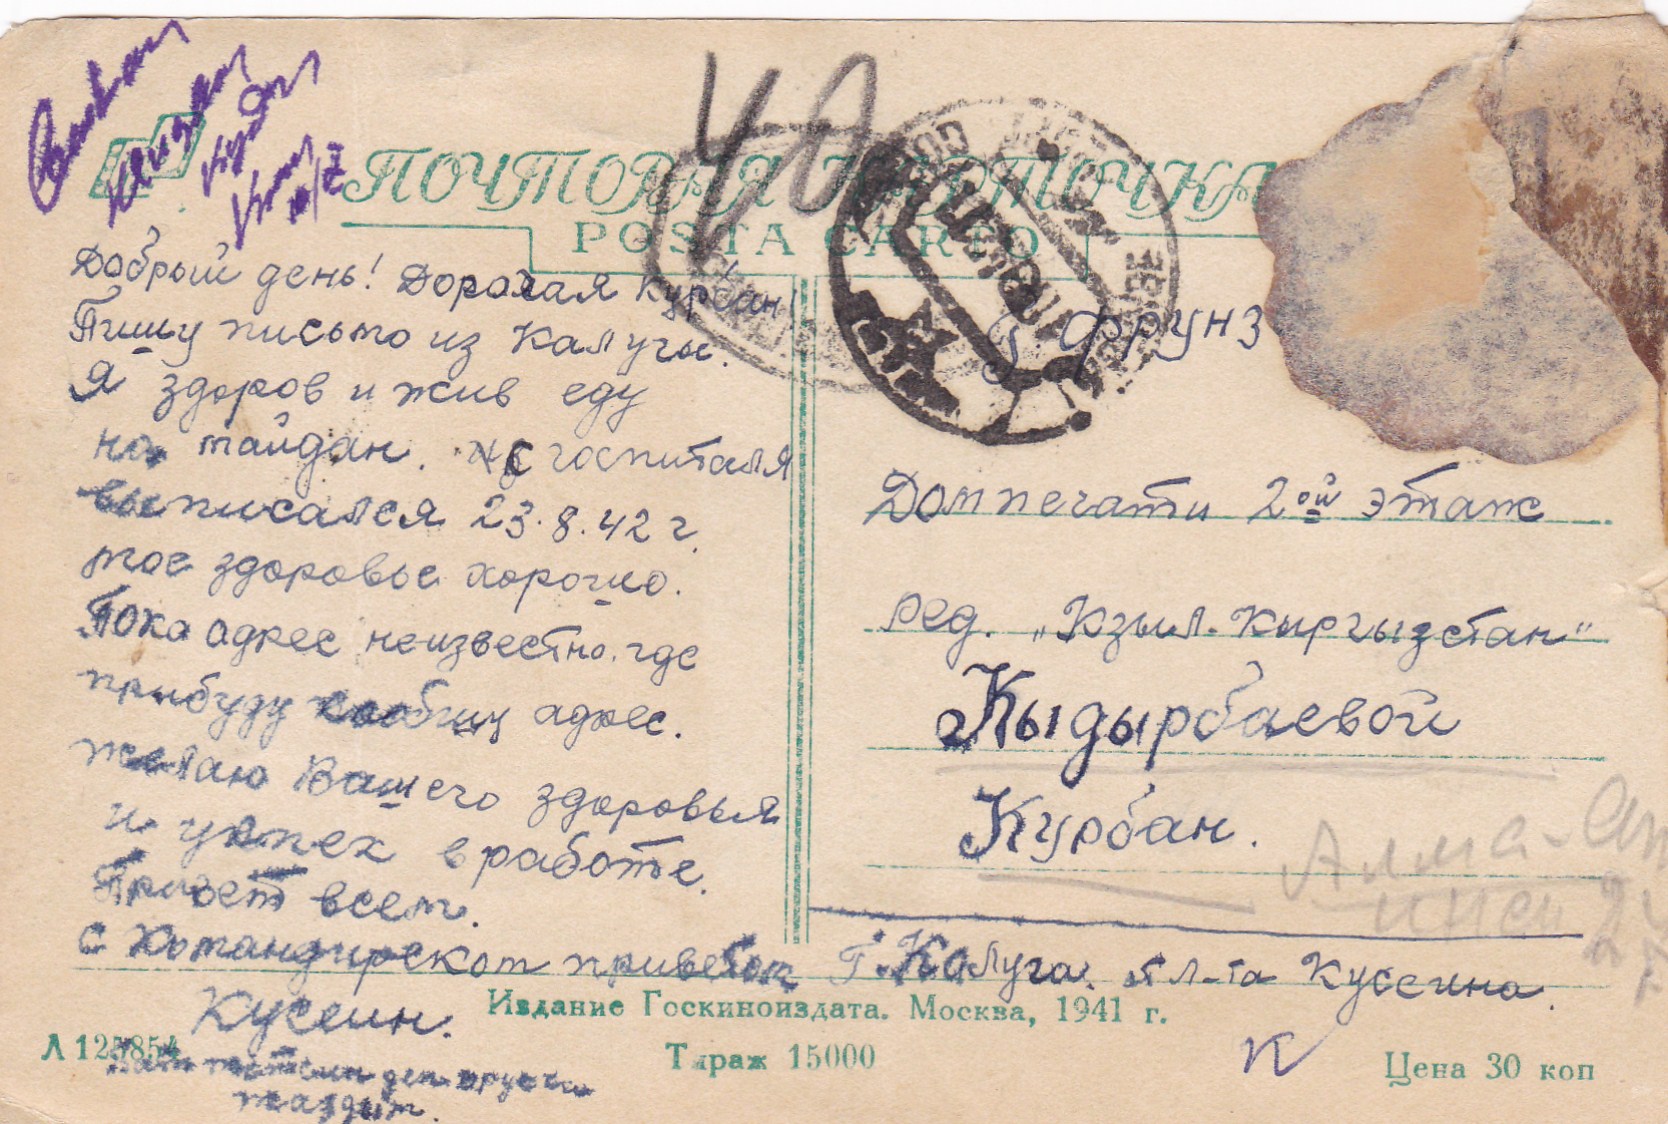 ПОЧТОВАЯ КАРТОЧКА
POSTA CARTO
Добрый день! Дорогая Курбан!
Пишу письмо из Калуги.
Я здоров и жив еду
на майдан. Из госпиталя
выписался 23.8.42 г.
мое здоровье хорошо.
Пока адрес неизвестно. где
прибуду сообщу адрес.
желаю Вашего здоровья
и успех в работе.
Привет всем.
с Командирском приветом
Кусеин.
г. Фрунз
Дом печати 2ой этаж
ред. „Кзыл-Кыргызстан“
Кыдырбаевой
Курбан.
Алма-Ат
Г. Калуга. от л-та Кусеина.
Издание Госкиноиздата. Москва, 1941 г.
Л 125854
Тираж 15000
К
Цена 30 коп